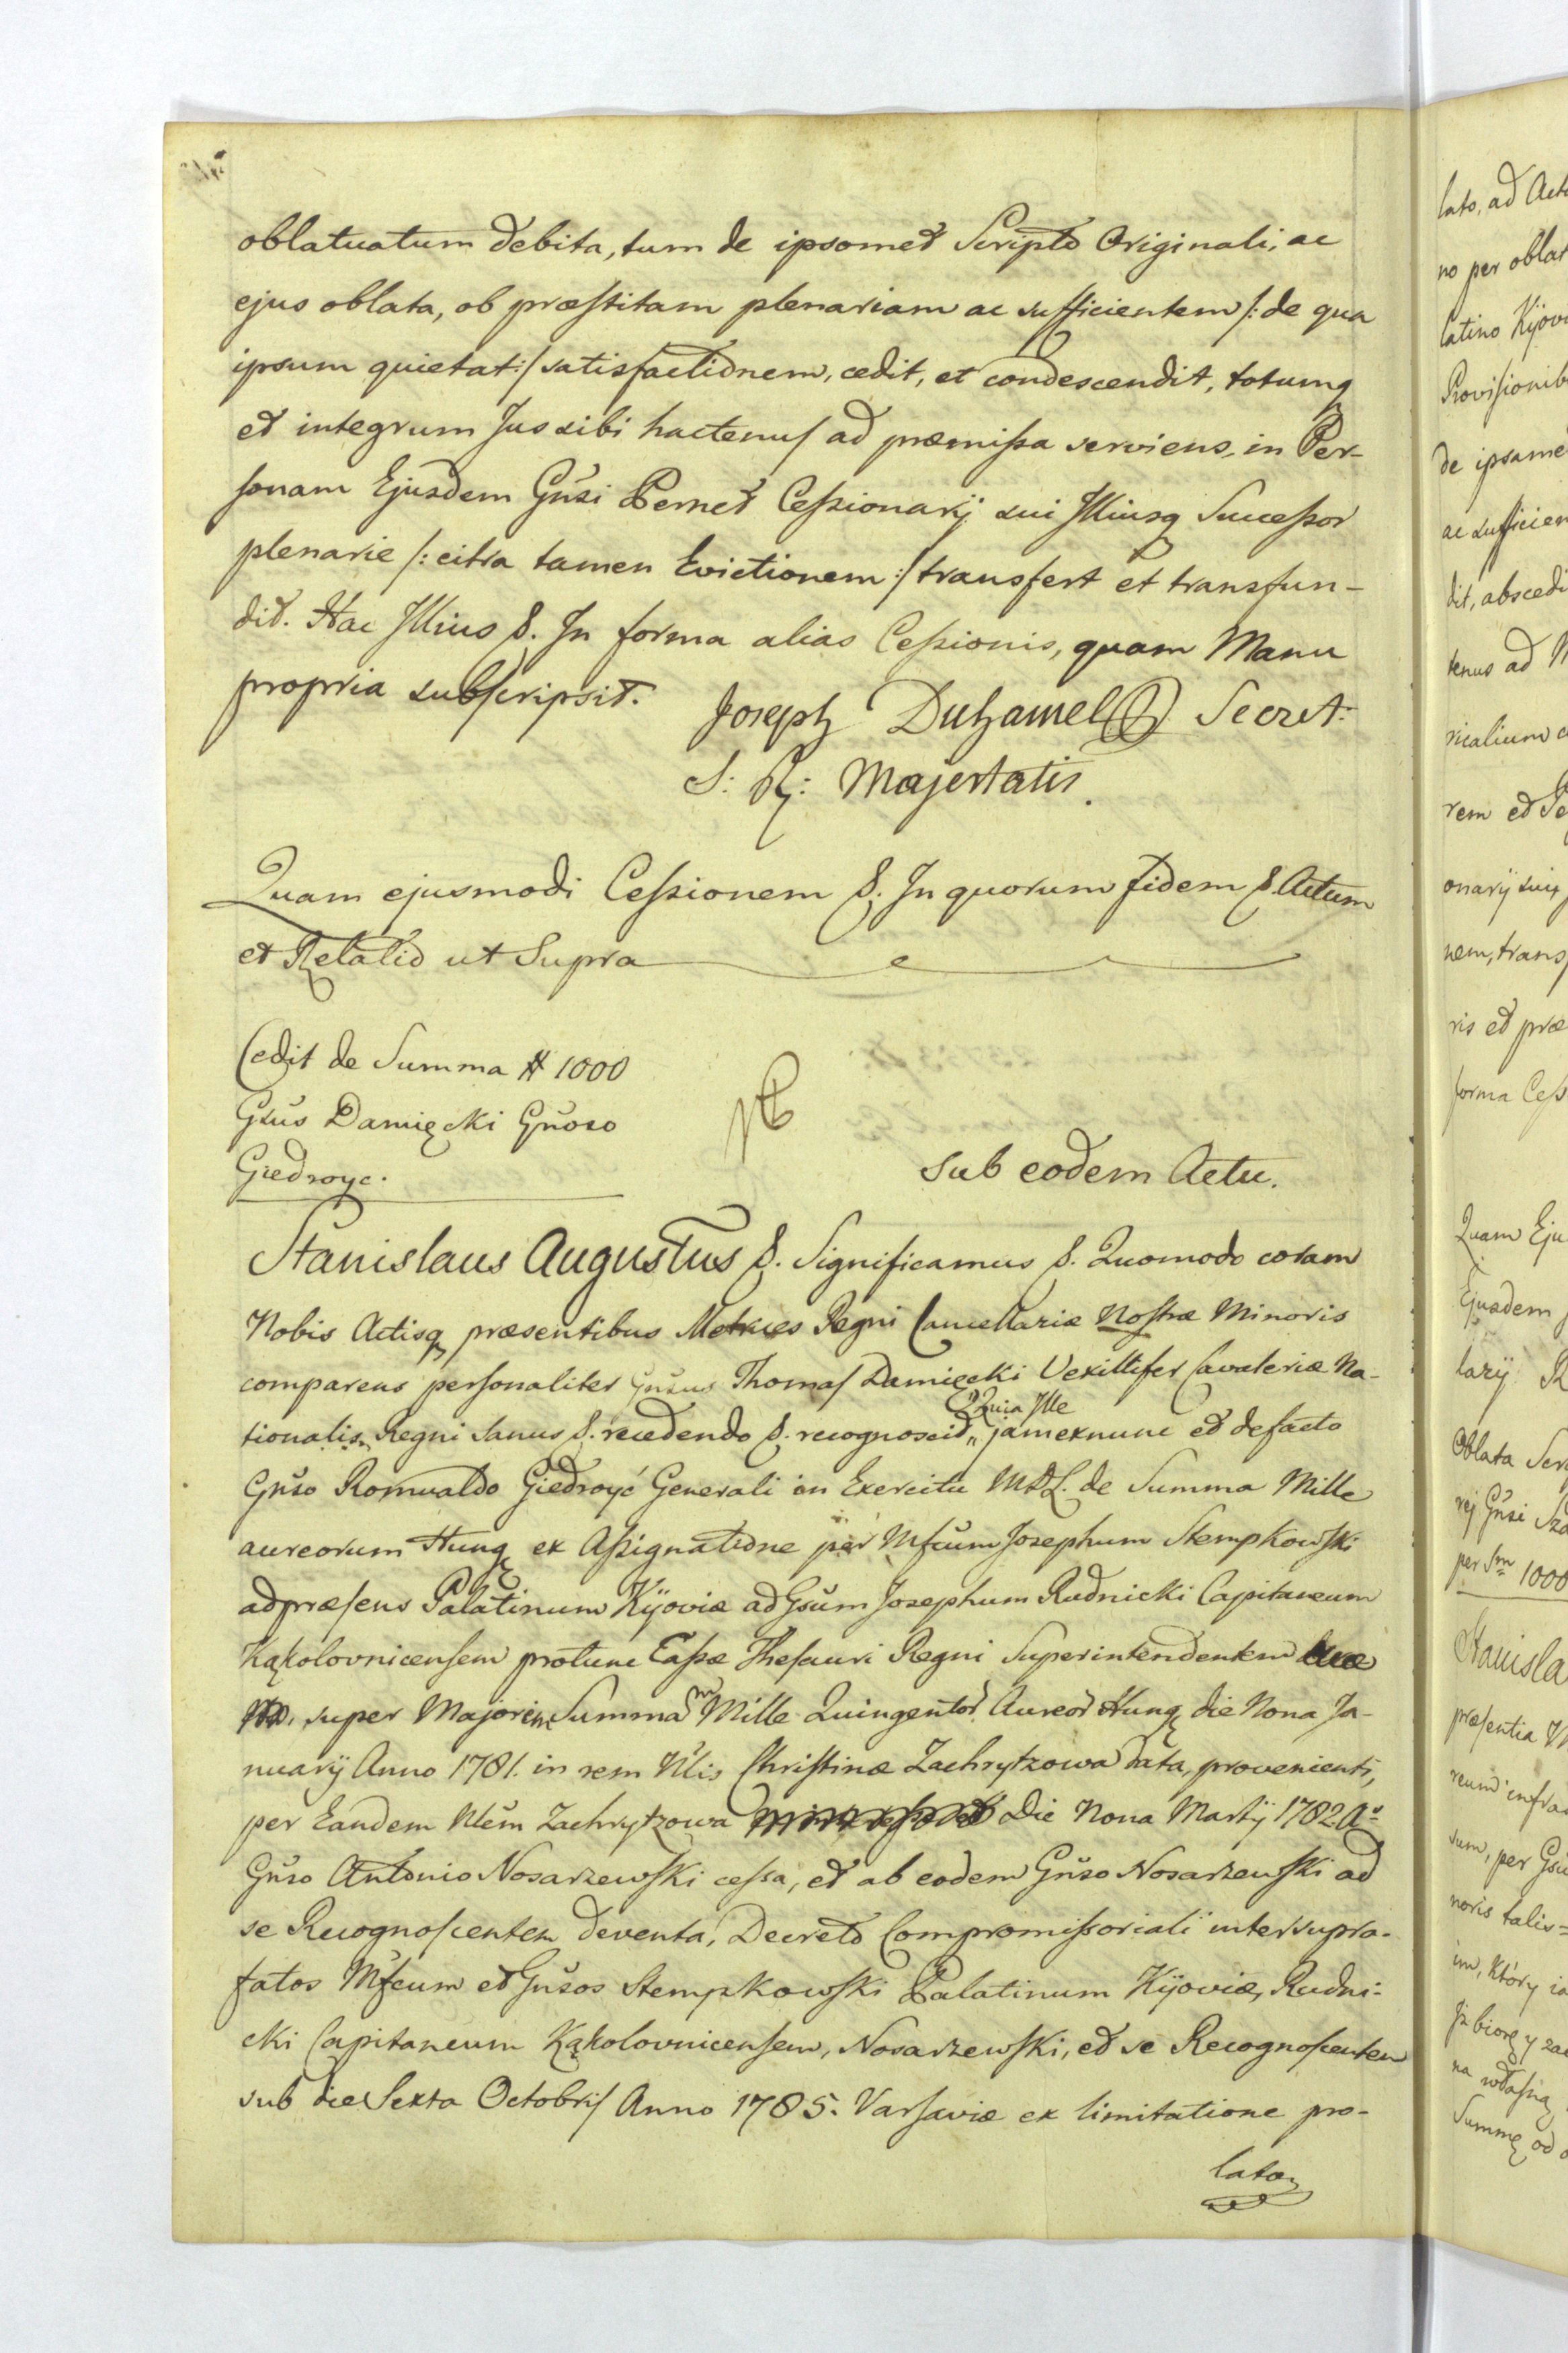 oblatuatum debita, tum de ipsomet Scripto Originali, ac
ejus oblata, ob præstitam plenariam ac sufficientem /: de qua
ipsum quietat :/ satisfactionem, cedit, et condescendit, totumq
et integrum Jus sibi hactenus ad præmissa serviens, in Per-
sonam Ejusdem Gnsi Bernet Cessionarij sui Illiusq Successor
plenarie /: citra tamen Evictionem :/ transfert et transfun-
dit. Hac Illius &. In forma alias Cessionis, quam Manu
propria subscripsit. Joseph Duhamel Secret:
S: R: Majestatis.
Quam ejusmodi Cessionem &. In quorum fidem &. Actum
et Relatio ut Supra
Cedit de Summa # 1000
Gsus Damięcki Gnoso
Giedroyc.
Sub eodem Actu.
Stanislaus Augustus &. Significamus &. Quomodo coram
Nobis Actisq præsentibus Metrices Regni Cancellariæ Nostræ Minoris
comparens personaliter Gnsus Thomas Damięcki Vexillifer Cavaleriæ Na-
tionalis Regni sanus &. recedendo &. recognoscit, Quia Ille jamexnunc et defacto
Gnso Romualdo Giedroyć Generali in Exercitu MDL. de Summa Mille
aureorum Hung ex Assignatione per Mfcum Josephum Stempkowski
adpræsens Palatinum Kijoviæ ad Gsum Josephum Rudnicki Capitaneum
Kąkolovnicensem protunc Cassæ Thesauri Regni Superintendentem
super Majorem Summam Mille Quingentor Aureor Hung die Nona Ja-
nuarij Anno 1781. in rem Nlis Christinæ Zachrytzowa data, provenienti,
per Eandem Nlem Zachrytzowa Die Nona Martij 1782 Ao
Gnso Antonio Nosarzewski cessa, et ab eodem Gnso Nosarzewski ad
se Recognoscentem deventa, Decreto Compromissoriali inter supra-
fatos Mfcum et Gnsos Stempkowski Palatinum Kijoviæ, Rudni-
cki Capitaneum Kąkolovnicensem, Nosarzewski, et se Recognoscentem
sub die Sexta Octobris Anno 1785. Varsaviæ ex limitatione pro-
lato
lato, ad Act
no per oblat
latino Kijov
Provisionib
de ipsame
ac sufficien
dit, abscedi
tenus ad
ricalium
rem et Se
onarij sui
nem, trans
ris et præ
forma Cess
Quam Eju
Ejusdem
larij
Oblata Scr
rej Gnsi
per Sm 1000
Stanisla
præsentia
reum infra
sum, per Gsu
noris talis=
im, który
Jż biorę y za
na własną
Summę od